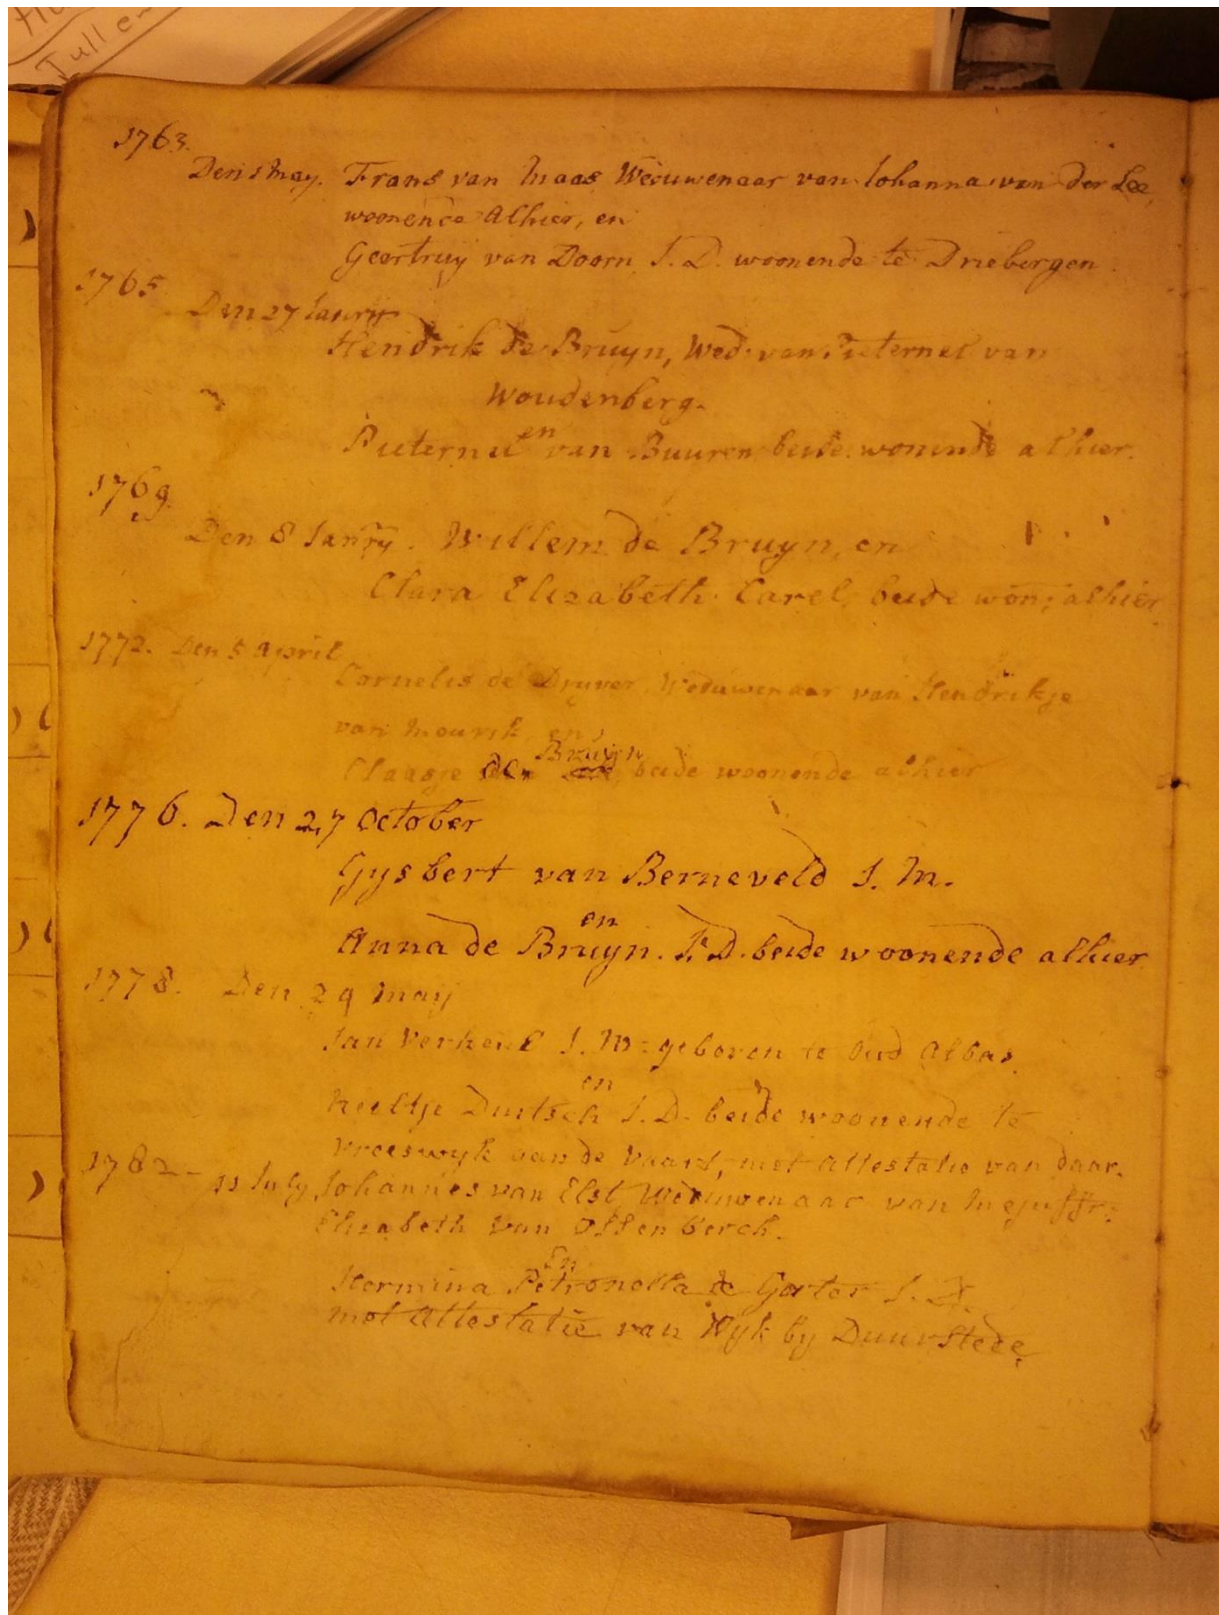 Tullen
1763.
Den 1 May. Frans van Maas Weduwenaar van Iohanna van der Lee,
woonende Alhier, en
Geertruij van Doorn I. D. woonende te Driebergen.
1765
Den 27 Ianrij
Hendrik de Bruyn, Wed: van Pieternel van
Woudenberg.
en
Pieternel van Buuren beide wonende alhier.
1769.
Den 8 Ianrij. Willem de Bruyn, en
Clara Elizabeth Carel, beide won; alhier
1772. Den 5 april
Cornelis de Dryver, Weduwenaar van Hendrikje
van Mourik, en
Bruyn
Claasje de beide woonende alhier
1776. Den 27 October
Gysbert van Berneveld I. M.
en
Anna de Bruyn. I. D. beide woonende alhier
1778. Den 29 Maij
Ian Verheul I. M. geboren te Oud Albas.
en
Neeltje Duitsch I. D. beide woonende te
Vreeswyk aan de Vaart, met Attestatie van daar.
1782 - 11 Iuly Iohannes van Elst Weduwenaar van Mejuffr:
Elizabeth van Offenberch.
En
Hermina Petronella de Gorter I. D.
met Attestatie van Wyk by Duurstede,